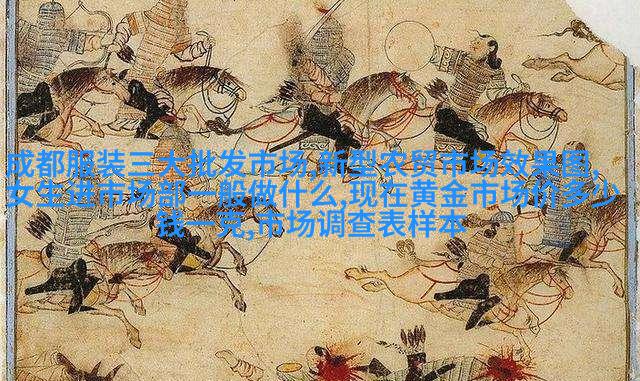 成都服装三大批发市场,新型农贸市场效果图,
女生进市场部一般做什么,现在黄金市场价多少
钱一克,市场调查表样本